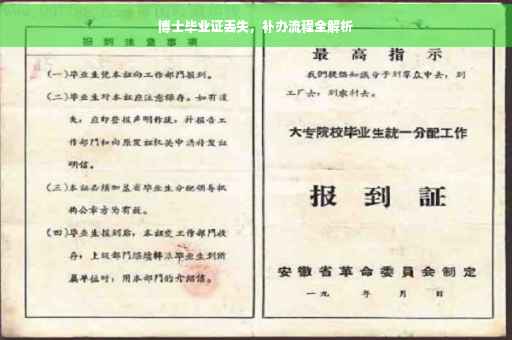 博士毕业证丢失，补办流程全解析
报到注意事项
(一)毕业生凭本证向工作部门报到。
(二)毕业生对本证应注意保存。如有遗
失，应即登报声明作废，并报告工
作部门和向原发证机关申请补发证
明信。
(三)本证必须加盖省毕业生分配领导机
构公章方为有效。
(四)毕业生报到后，本证交工作部门收
存；上级部门
毕业生到所
属单位时，用本部门的介绍信。
最高指示
我们提倡知识分子到群众中去，到
工厂去，到农村去。
大专院校毕业生統一分配工作
报到証
安徽省革命委員会制定
一九 年 月 日